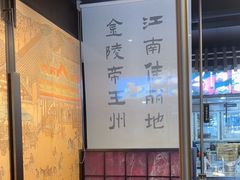 江南佳丽地
金陵帝王州